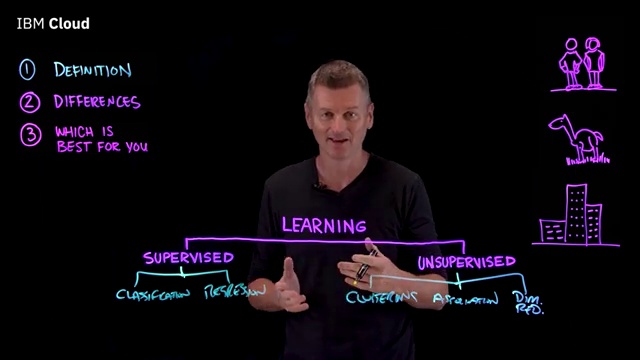 IBM Cloud
1 DEFINITION
2 DIFFERENCES
3 WHICH IS
BEST FOR YOU
LEARNING
SUPERVISED
UNSUPERVISED
CLASSIFICATION
REGRESSION
CLUSTERING
ASSOCIATION
DIM.
RED.